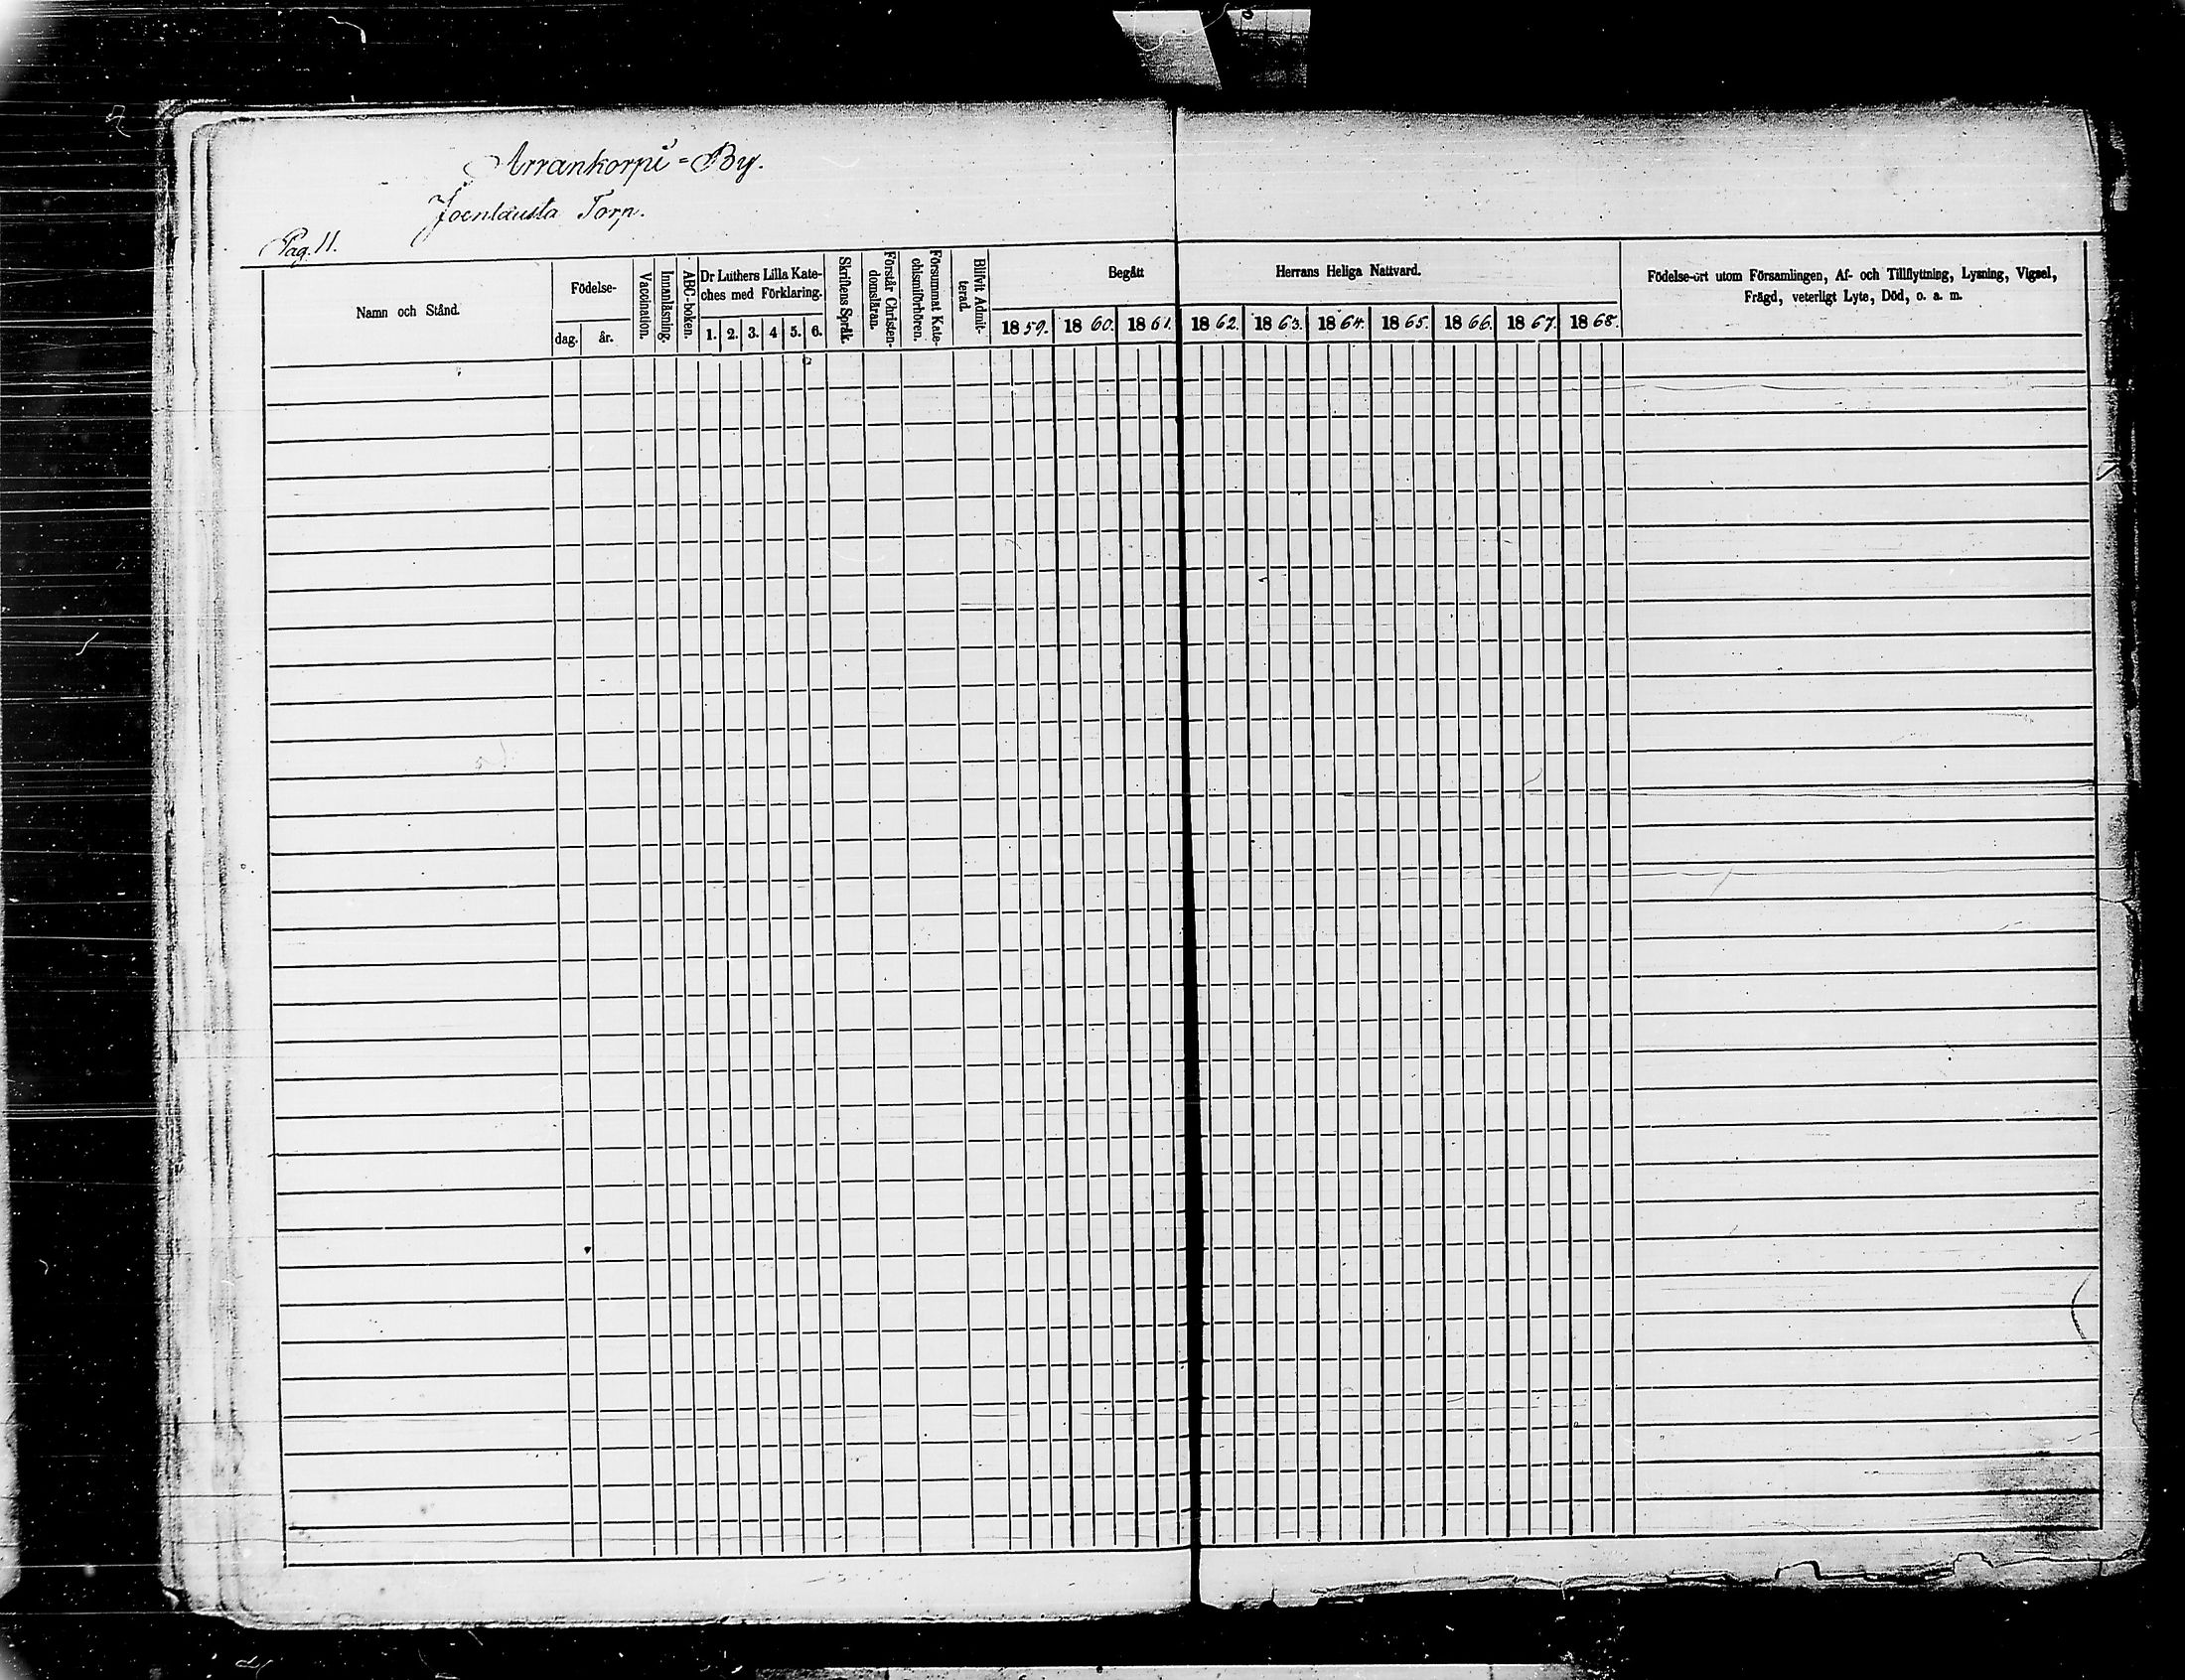 Arrankorpi=By.
Joentausta Torp.
Pag. 11.
Namn och Stånd.
Födelse-
dag.
år.
Vaccination.
Innanläsning.
ABC-boken.
Dr Luthers Lilla Kate-
ches med Förklaring.
1. 2. 3. 4 5. 6.
Skriftens Språk.
Förstår Christen-
domsläran.
Försummat Kate-
chismiförhören.
Blifvit Admit-
terad.
Begått Herrans Heliga Nattvard.
1859. 1860. 1861. 1862. 1863. 1864. 1865. 1866. 1867. 1868.
Födelse-ort utom Församlingen, Af- och Tillflyttning, Lysning, Vigsel,
Frägd, veterligt Lyte, Död, o. a. m.